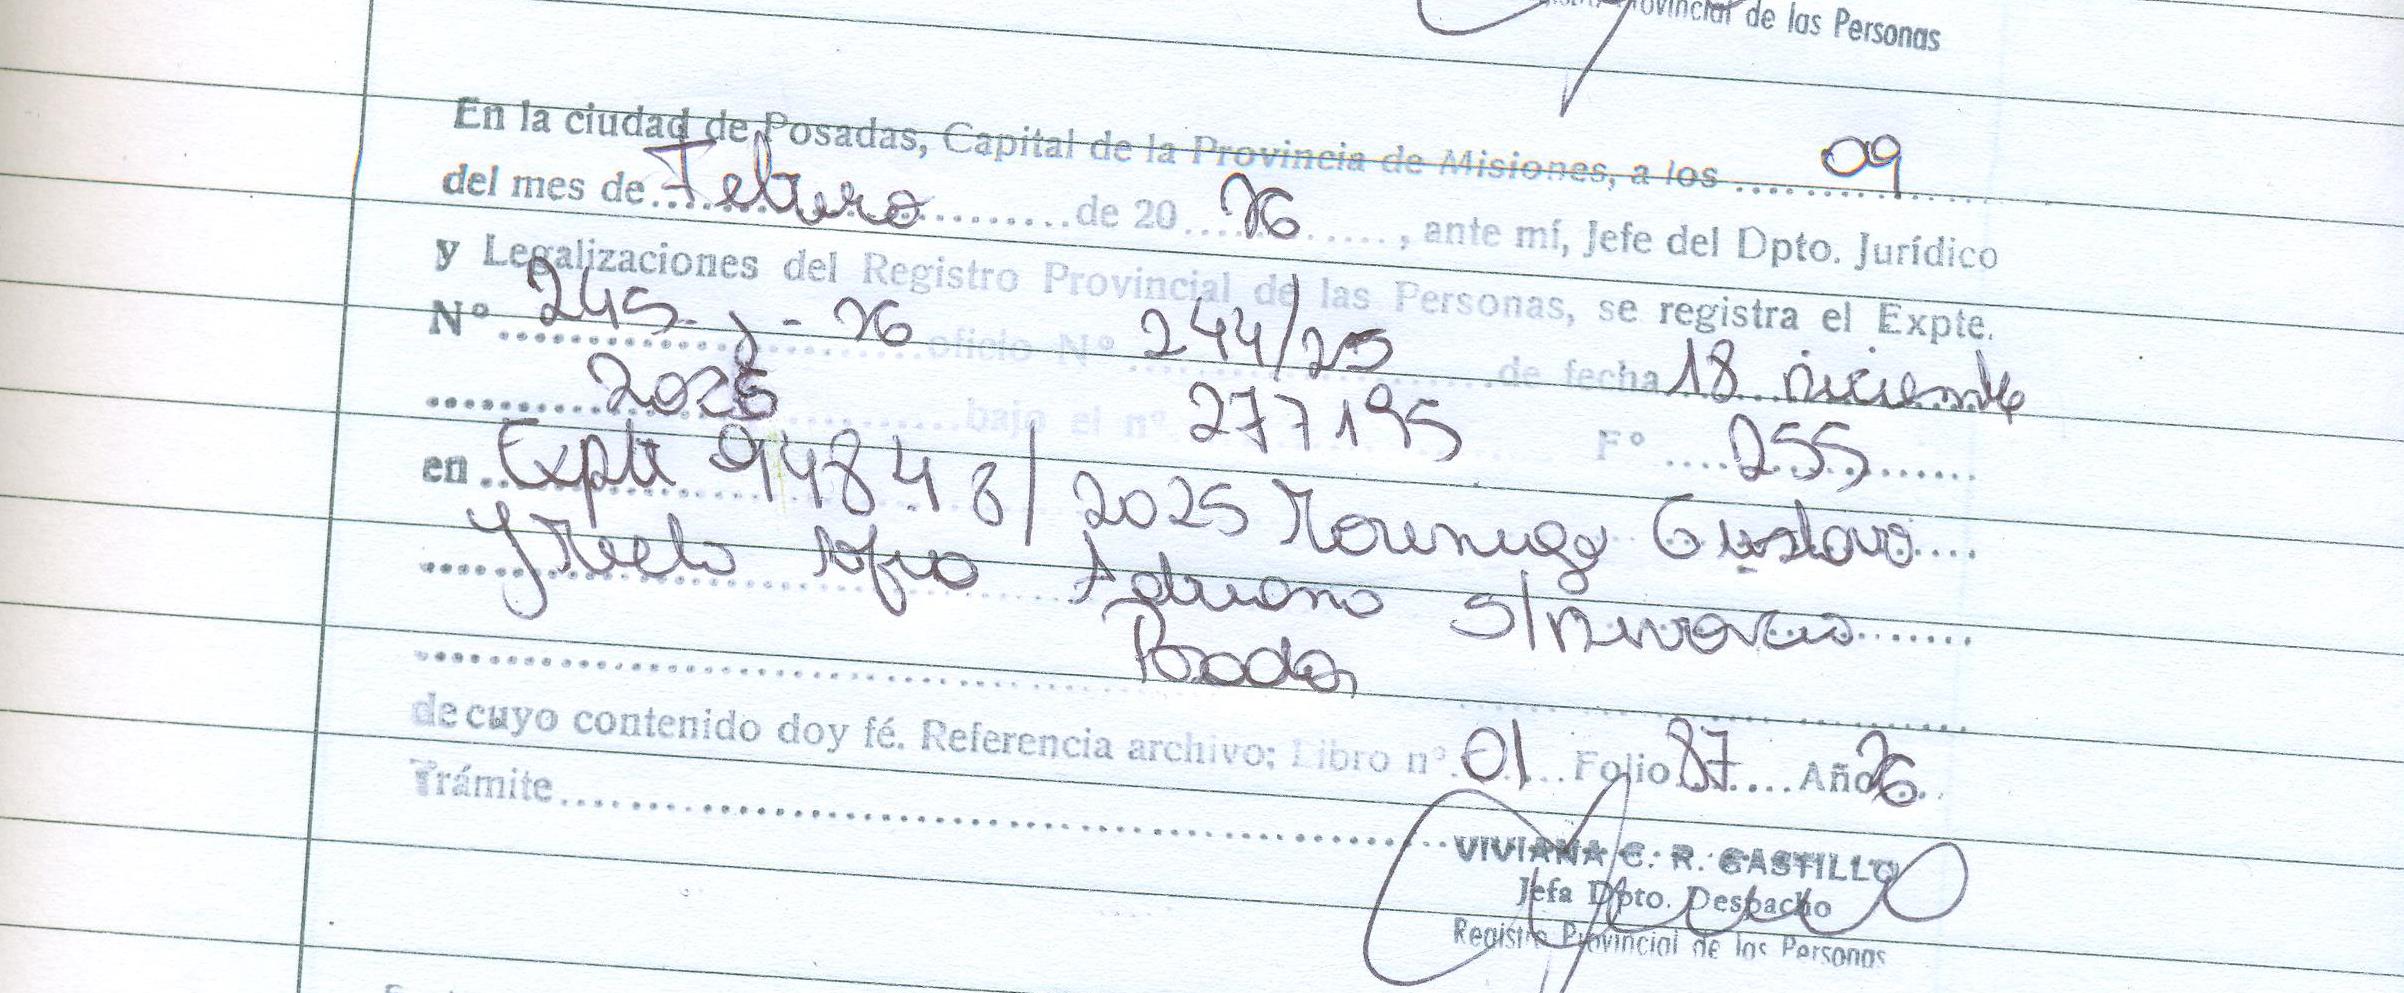 Provincial de las Personas
En la ciudad de Posadas, Capital de la Provincia de Misiones, a los 09
del mes de Febrero de 20 26, ante mí, Jefe del Dpto. Jurídico
y Legalizaciones del Registro Provincial de las Personas, se registra el Expte.
Nº 245-J-26 oficio Nº 244/25 de fecha 18 Diciembre
2025 bajo el nº 277195 Fº 255
en Expte 94848/2025 Gustavo
Adriana S/Divorcio
Posadas
de cuyo contenido doy fé. Referencia archivo; Libro nº 01 Folio 87 Año 26
Trámite
VIVIANA C. R. CASTILLO
Jefa Dpto. Despacho
Registro Provincial de las Personas